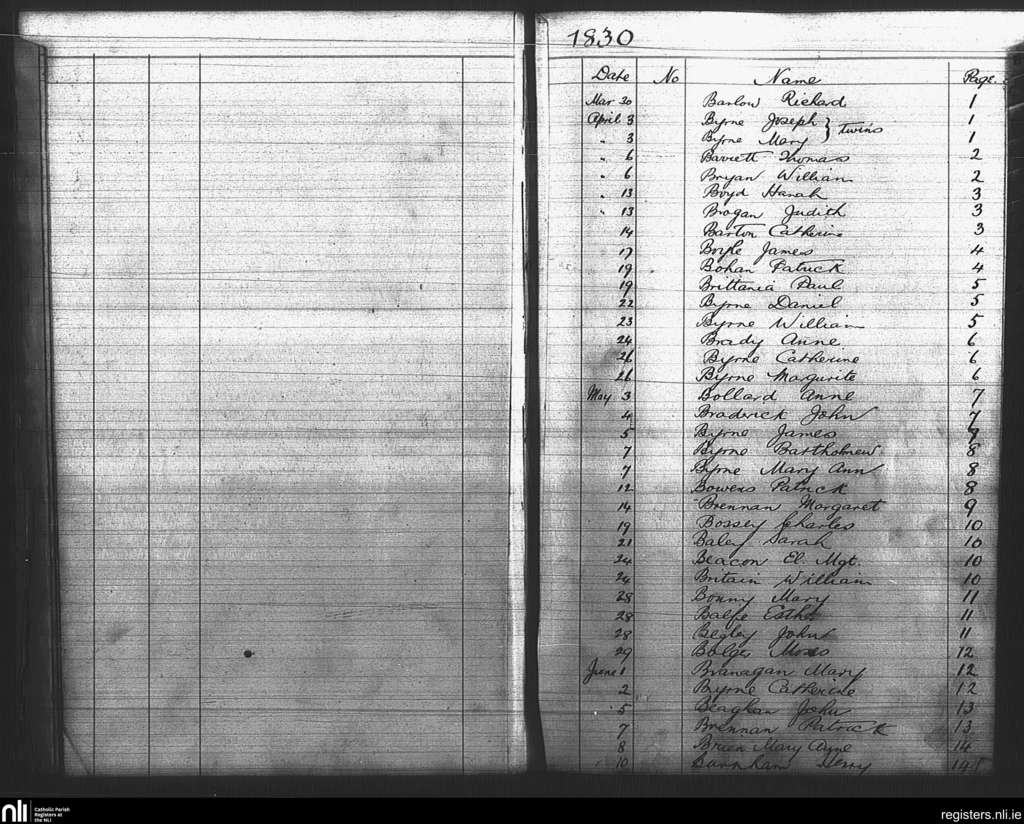 1830
Date No Name Page
Mar 30 Barlow Richard 1
April 3 Byrne Joseph } twins 1
" 3 Byrne Mary 1
" 6 Barrett Thomas 2
" 6 Bryan William 2
" 13 Boyd Harah 3
" 13 Brogan Judith 3
14 Barton Catherine 3
17 Boyle James 4
19 Bohan Patrick 4
19 Brittania Paul 5
22 Byrne Daniel 5
23 Byrne William 5
24 Brady Anne 6
26 Byrne Catherine 6
26 Byrne Margurite 6
May 3 Bollard Anne 7
4 Broderick John 7
5 Byrne James 7
7 Byrne Bartholmew 8
7 Byrne Mary Ann 8
12 Bowers Patrick 8
14 Brennan Margaret 9
19 Bossey Charles 10
21 Baley Sarah 10
24 Beacon El. Mgt. 10
24 Britain William 10
28 Bonny Mary 11
28 Balfe Esthr 11
28 Begley John 11
29 Bolger Moses 12
June 1 Branagan Mary 12
2 Byrne Catherine 12
5 Beaghan John 13
7 Brennan Patrick 13
8 Brien Mary Anne 14
10 14
nli Catholic Parish
Registers at
the NLI
registers.nli.ie